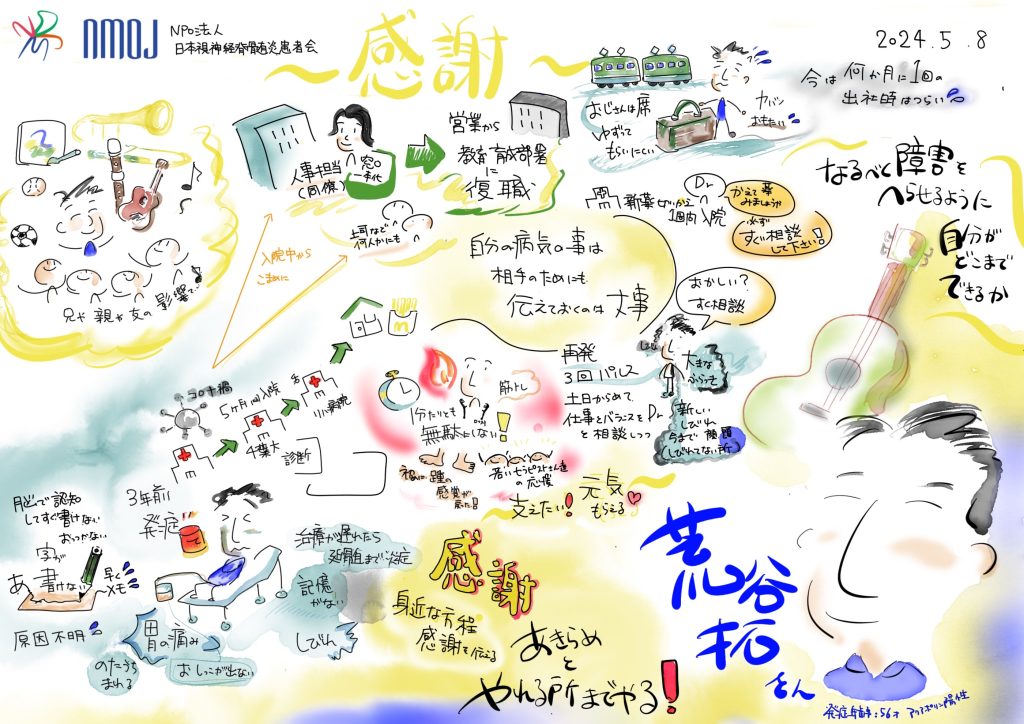 NMOJ
NPO法人
日本視神経脊髄炎患者会
～感謝～
2024.5.8
今は何か月に1回の
出社時はつらい
おじさんは席
ゆずって
もらいにくい
カバン
おもたい
人事担当
(同僚)
窓口
一本化
営業から
教育育成部署
に
復職
上司など
何人かにも
入院中から
こまめに
兄や親や友の影響で
自分の病気の事は
相手のためにも
伝えておくのは大事
新薬
1週間入院
Dr
かえて
みましょうか
必ず
すぐ相談
して下さい!
おかしい?
すぐ相談
なるべく障害を
へらせるように
自分が
どこまで
できるか
コロナ禍
5ヶ月間入院
診断
1分たりとも
無駄にしない!
筋トレ
感覚が
若いセラピストさん達
の応援
支えたい!
元気
もらえる
再発
3回パルス
土日からめて
仕事とバランスをDr
と相談しつつ
しびれ
大きな
ふらつき
新しい
しびれ
今まで
(しびれてない所)
3年前に
発症
脳で認知
してすぐ書けない
おっつかない
字が
書けない
あ
早く
メモ
原因不明
胃の痛み
のたうち
まわる
おしっこが出ない
治療が遅れたら
延髄まで炎症
記憶
がない
しびれ
感謝
身近な方程
感謝を伝える
あきらめ
と
やれる所までやる!
荒谷
拓
さん
発症年齢:56才 アクアポリン陽性